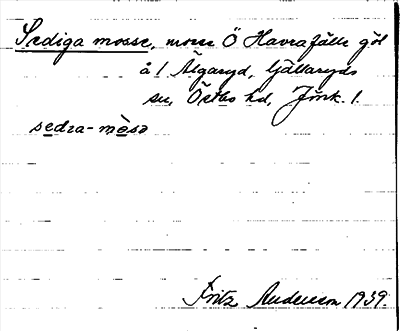 Sediga mosse, mosse Ö Havrafälle göl
å / Älgaryd, Gällaryds
sn, Östbo hd, Jönk. l.
sedra-mòsa
Fritz Anderson 1939.